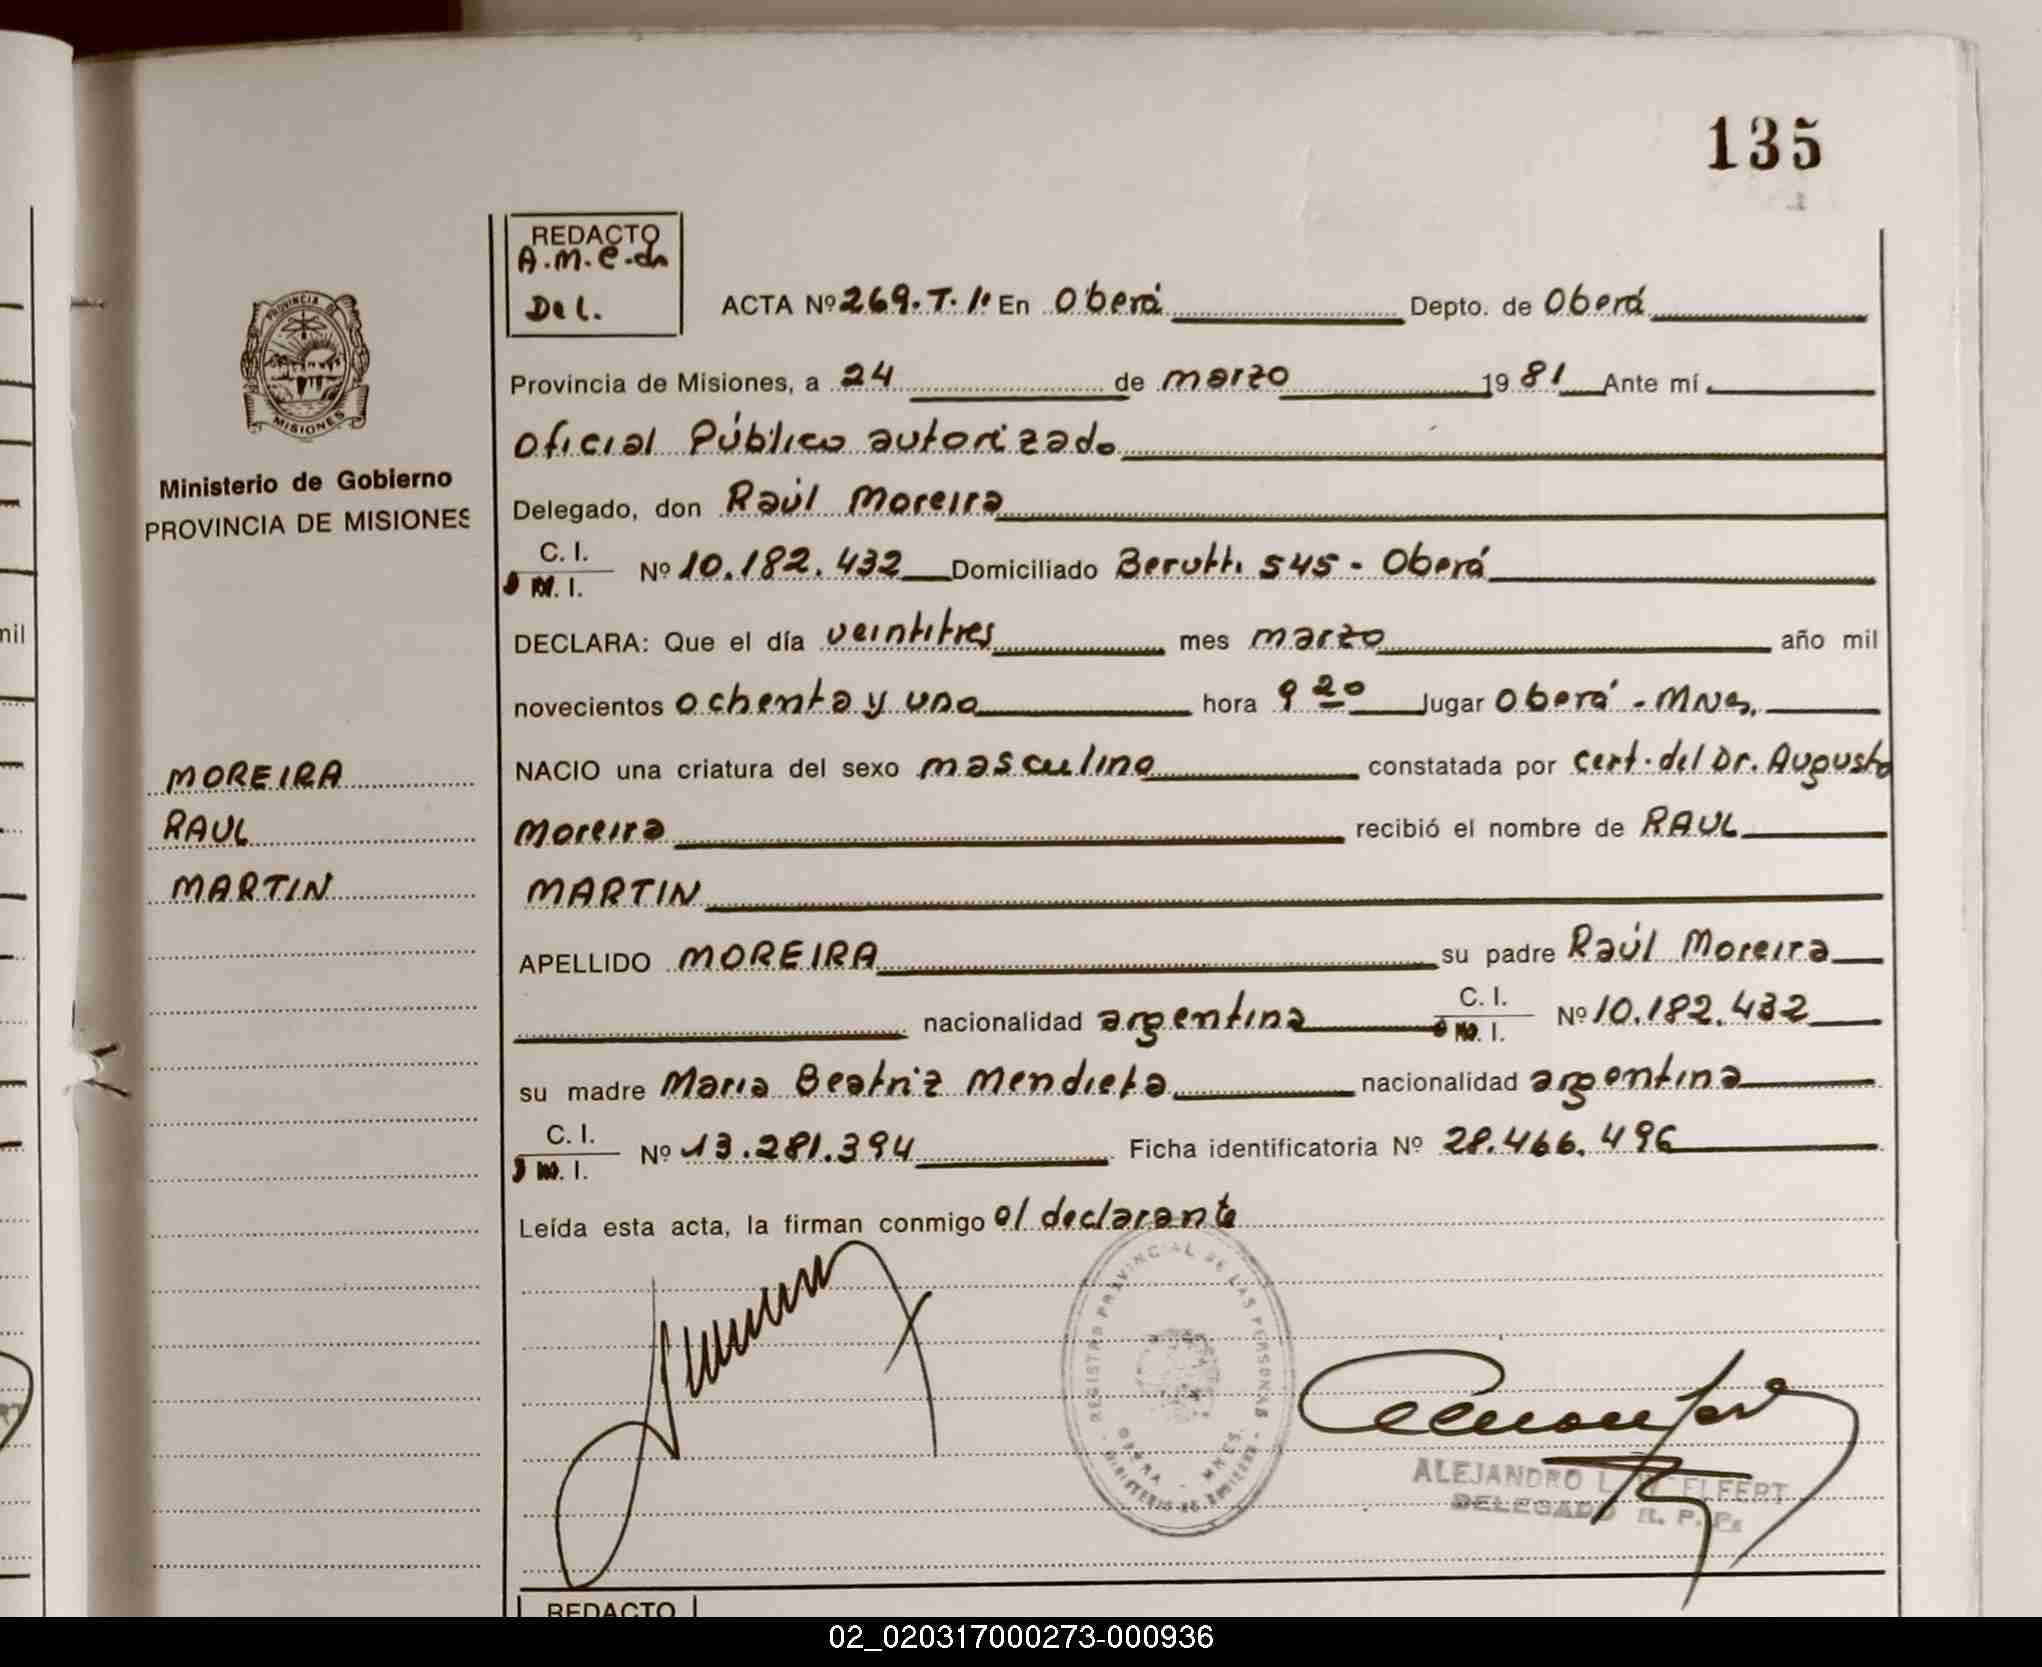 135
REDACTO
A.M.C.dn
Del.
ACTA Nº 269.T.1º En Oberá Depto. de Oberá
Provincia de Misiones, a 24 de marzo 19 81 Ante mí
Oficial Público autorizado
Delegado, don Raúl Moreira
C. I.
M. I. Nº 10.182.432 Domiciliado Berutti 545 - Oberá
DECLARA: Que el día veintitres mes marzo año mil
novecientos ochenta y uno hora 9 20 lugar Oberá - MNes,
NACIO una criatura del sexo masculino constatada por cert. del Dr. Augusto
Moreira recibió el nombre de RAUL
MARTIN
APELLIDO MOREIRA su padre Raúl Moreira
nacionalidad argentina C. I. M. I. Nº 10.182.432
su madre Maria Beatriz Mendieta nacionalidad argentina
C. I.
M. I. Nº 13.281.394 Ficha identificatoria Nº 28.466.496
Leída esta acta, la firman conmigo el declarante
PROVINCIA DE
MISIONES
Ministerio de Gobierno
PROVINCIA DE MISIONES
MOREIRA
RAUL
MARTIN
mil
REGISTRO PROVINCIAL DE LAS PERSONAS
OBERA - MNES.
MINISTERIO DE GOBIERNO
ALEJANDRO L.
DELEGADO R. P. P.
REDACTO
02_020317000273-000936